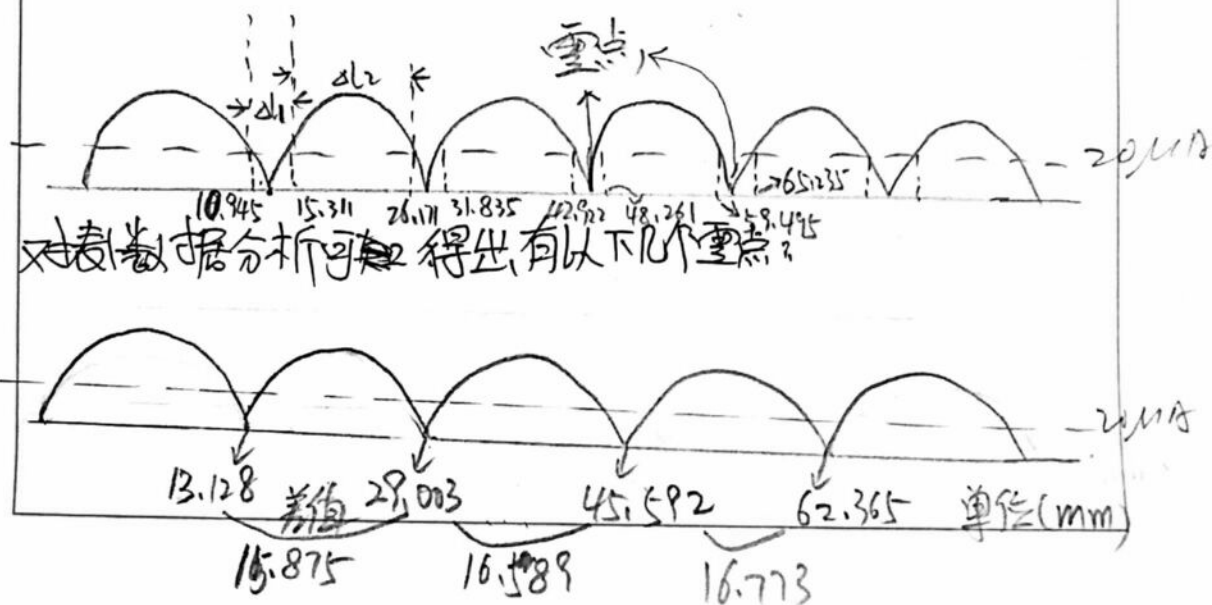 零点
Δl1 Δl2
20μA
10.945 15.311 26.171 31.835 42.922 48.261 59.495 65.235
对表1数据分析可 得出,有以下几个零点:
20μA
13.128 29.003 45.592 62.365 单位(mm)
差值
15.875 16.589 16.773